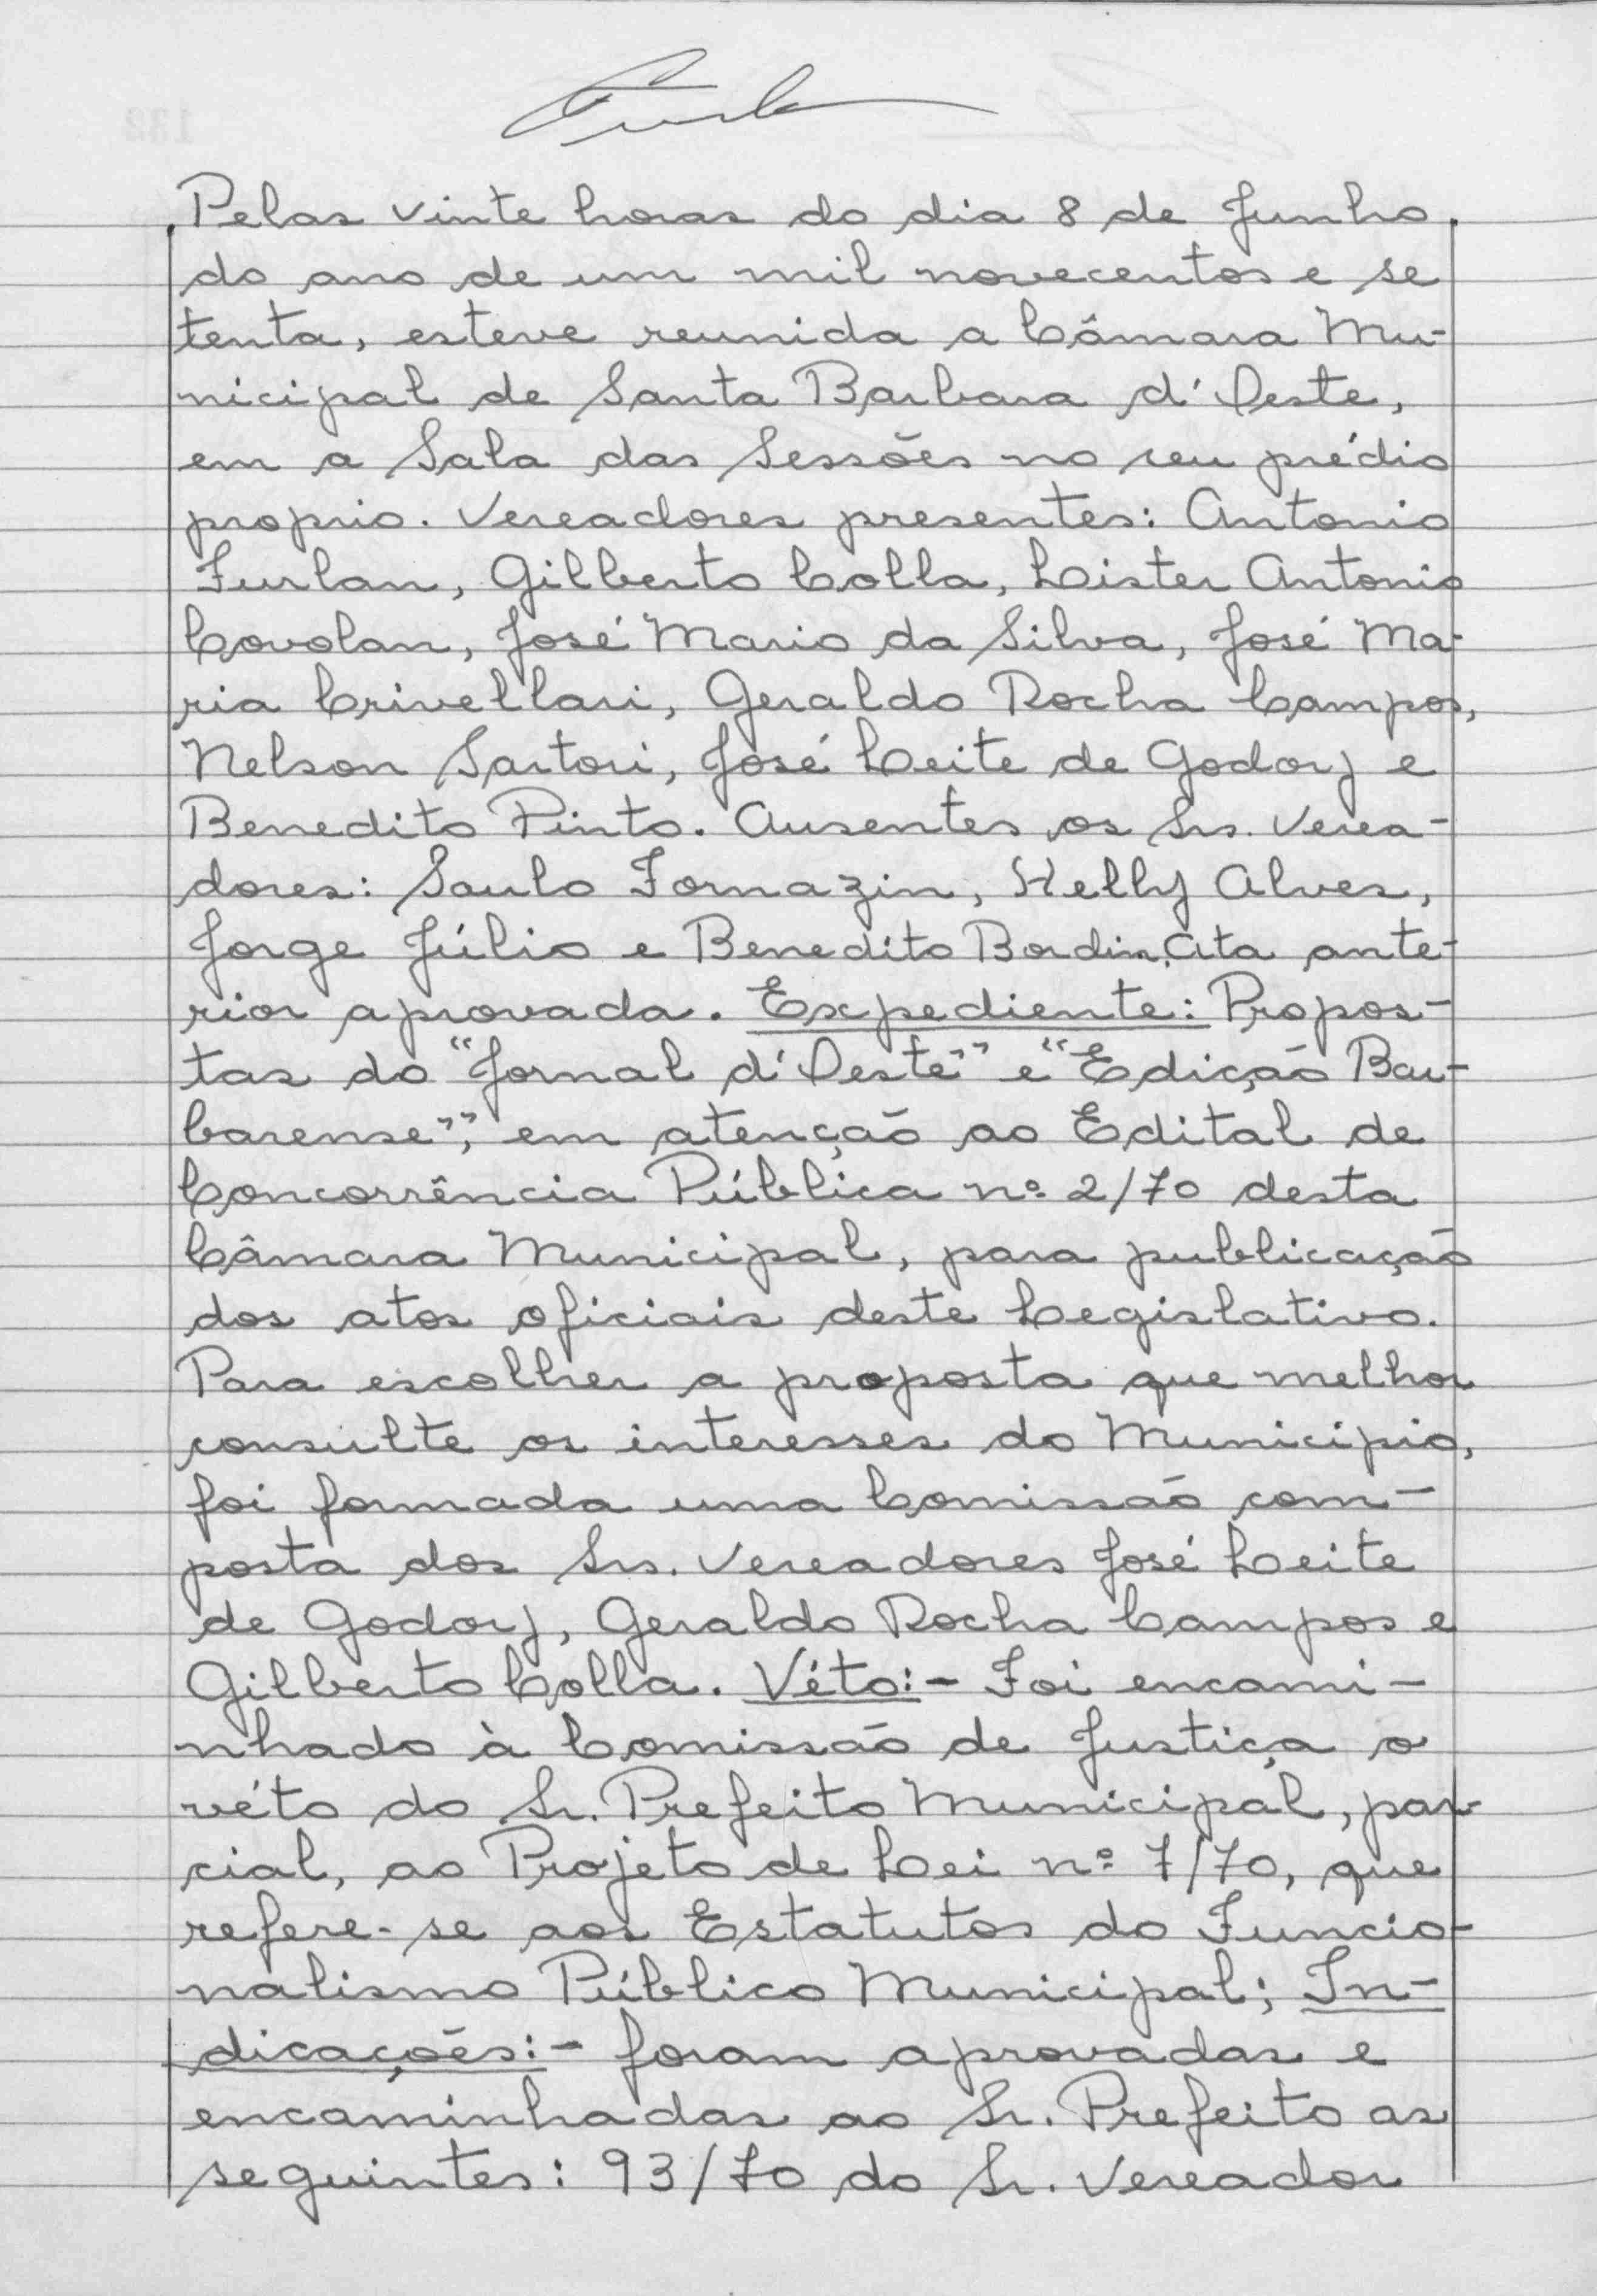 Pelas vinte horas do dia 8 de Junho
do ano de um mil novecentos e se
tenta, esteve reunida a Câmara Mu-
nicipal de Santa Barbara d'Oeste,
em a Sala das Sessões no seu prédio
proprio. Vereadores presentes: Antonio
Furlan, Gilberto Colla, Lister Antonio
Covolan, José Mario da Silva, José Ma-
ria Crivellari, Geraldo Rocha Campos,
Nelson Sartori, José Leite de Godoy e
Benedito Pinto. Ausentes os Srs. Verea-
dores: Saulo Fornazin, Helly Alves,
Jorge Júlio e Benedito Bordin. Ata ante-
rior aprovada. Expediente: Propos-
tas do "Jornal d'Oeste" e "Edição Bar-
barense", em atenção ao Edital de
Concorrência Pública nº 2/70 desta
Câmara Municipal, para publicação
dos atos oficiais deste Legislativo.
Para escolher a proposta que melhor
consulte os interesses do Municipio,
foi formada uma Comissão com-
posta dos Srs. Vereadores José Leite
de Godoy, Geraldo Rocha Campos e
Gilberto Colla. Véto:- Foi encami-
nhado à Comissão de Justiça o
véto do Sr. Prefeito Municipal, par-
cial, ao Projeto de Lei nº 7/70, que
refere-se aos Estatutos do Funcio-
nalismo Público Municipal; In-
dicações:- foram aprovadas e
encaminhadas ao Sr. Prefeito as
seguintes: 93/70 do Sr. Vereador